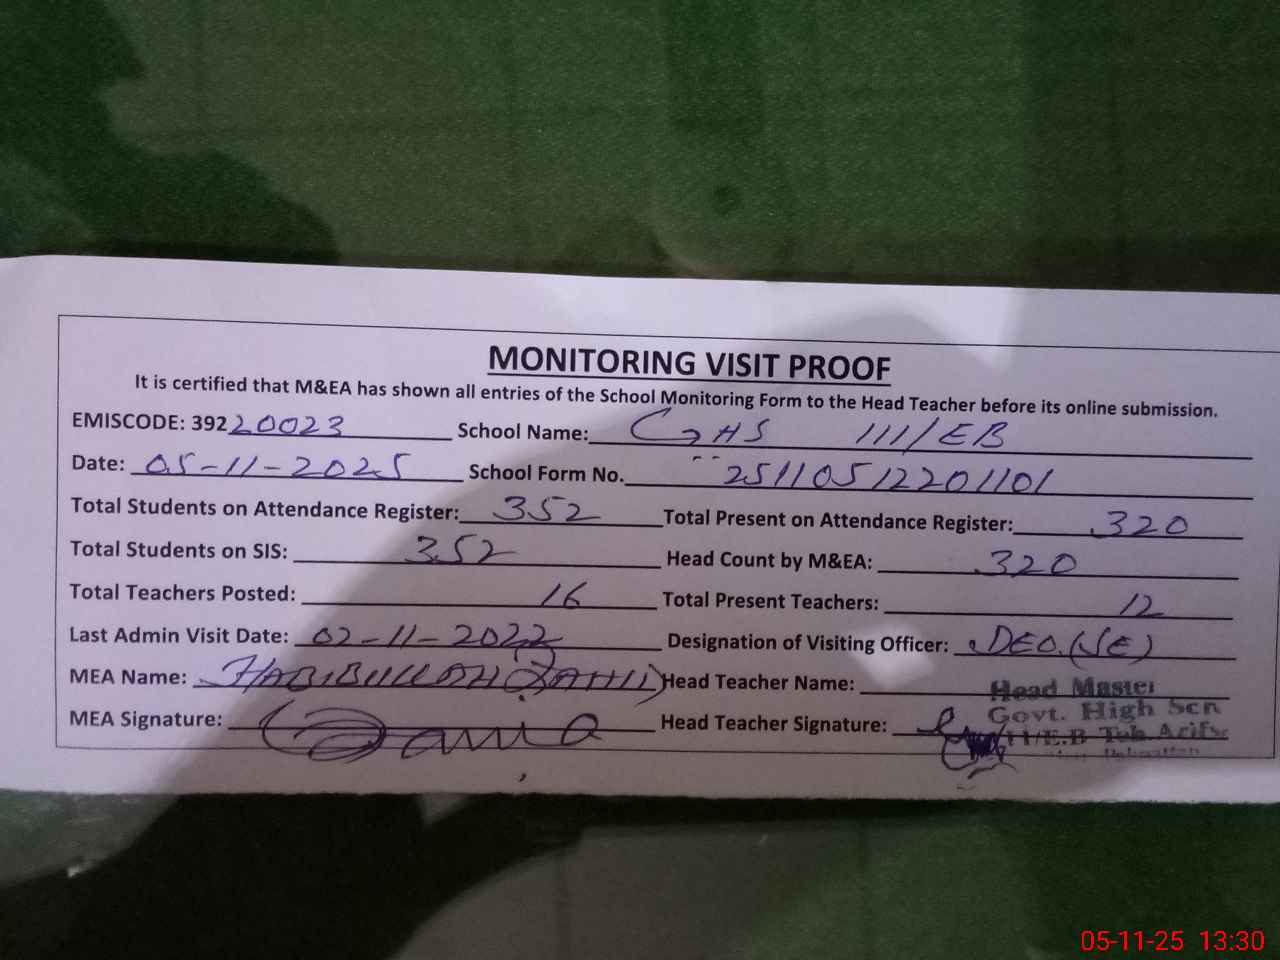 MONITORING VISIT PROOF
It is certified that M&EA has shown all entries of the School Monitoring Form to the Head Teacher before its online submission.
EMISCODE: 39220023 School Name: GHS 111/EB
Date: 05-11-2025 School Form No. 25110512201101
Total Students on Attendance Register: 352 Total Present on Attendance Register: 320
Total Students on SIS: 352 Head Count by M&EA: 320
Total Teachers Posted: 16 Total Present Teachers: 12
Last Admin Visit Date: 02-11-2022 Designation of Visiting Officer: DEO.(SE)
MEA Name: HABIBULLAH ZAHID Head Teacher Name:
MEA Signature: Head Teacher Signature:
Head Master
Govt. High Sch
11/E.B Teh Arifw
05-11-25 13:30